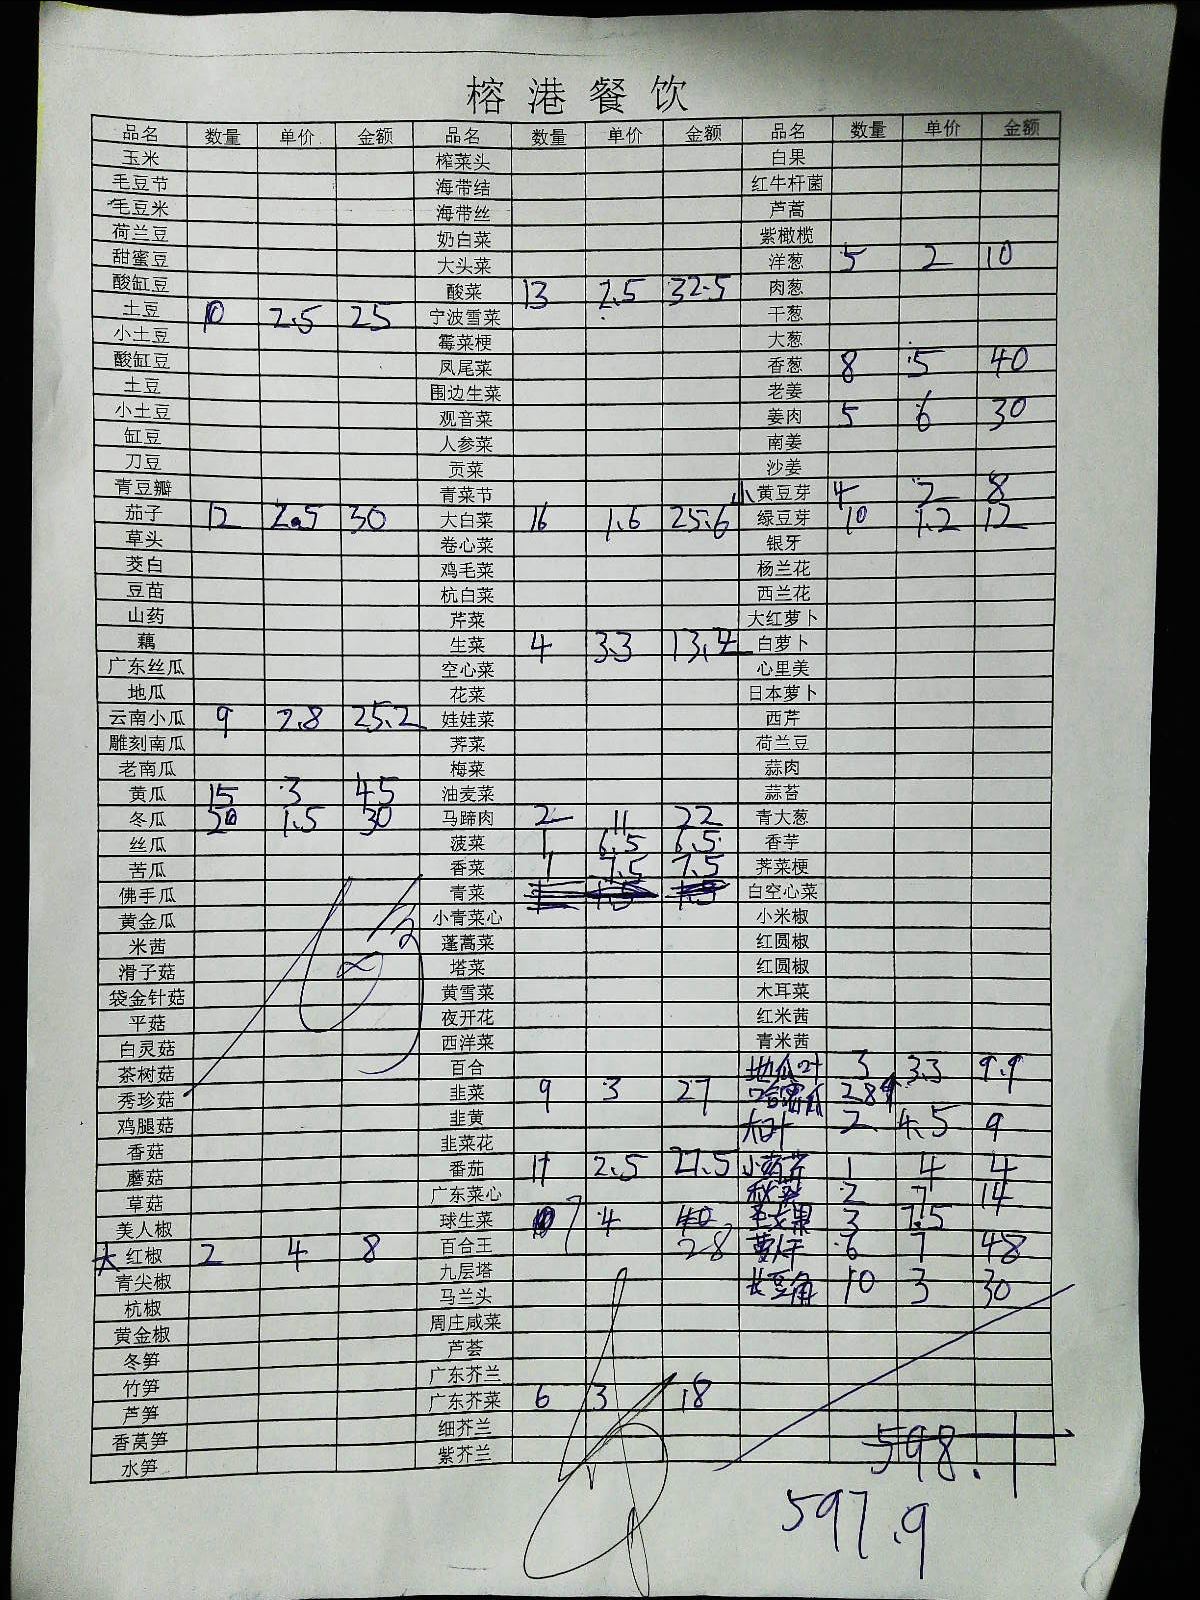 榕港餐饮
品名 数量 单价 金额 品名 数量 单价 金额 品名 数量 单价 金额
玉米 榨菜头 白果
毛豆节 海带结 红牛杆菌
毛豆米 海带丝 芦蒿
荷兰豆 奶白菜 紫橄榄
甜蜜豆 大头菜 洋葱 5 2 10
酸缸豆 酸菜 13 2.5 32.5 肉葱
土豆 10 2.5 25 宁波雪菜 干葱
小土豆 霉菜梗 大葱
酸缸豆 凤尾菜 香葱 8 5 40
土豆 围边生菜 老姜
小土豆 观音菜 姜肉 5 6 30
缸豆 人参菜 南姜
刀豆 贡菜 沙姜
青豆瓣 青菜节 小黄豆芽 4 2 8
茄子 12 2.5 30 大白菜 16 1.6 25.6 绿豆芽 10 1.2 12
草头 卷心菜 银牙
茭白 鸡毛菜 杨兰花
豆苗 杭白菜 西兰花
山药 芹菜 大红萝卜
藕 生菜 4 3.3 13.2 白萝卜
广东丝瓜 空心菜 心里美
地瓜 花菜 日本萝卜
云南小瓜 9 2.8 25.2 娃娃菜 西芹
雕刻南瓜 荠菜 荷兰豆
老南瓜 梅菜 蒜肉
黄瓜 15 3 45 油麦菜 蒜苔
冬瓜 20 1.5 30 马蹄肉 2 11 22 青大葱
丝瓜 菠菜 1 6.5 6.5 香芋
苦瓜 香菜 1 7.5 7.5 荠菜梗
佛手瓜 青菜 白空心菜
黄金瓜 小青菜心 小米椒
米茜 蓬蒿菜 红圆椒
滑子菇 塔菜 红圆椒
袋金针菇 黄雪菜 木耳菜
平菇 夜开花 红米茜
白灵菇 西洋菜 青米茜
茶树菇 百合 地瓜叶 3 3.3 9.9
秀珍菇 韭菜 9 3 27 哈密瓜
鸡腿菇 韭黄 2 4.5 9
香菇 韭菜花
蘑菇 番茄 11 2.5 27.5 小葫芦 1 4 4
草菇 广东菜心 秋葵 2 7 14
美人椒 球生菜 7 4 28 3 7.5
大红椒 2 4 8 百合王 6 7 48
青尖椒 九层塔 长豆角 10 3 30
杭椒 马兰头
黄金椒 周庄咸菜
冬笋 芦荟
竹笋 广东芥兰
芦笋 广东芥菜 6 3 18
香莴笋 细芥兰
水笋 紫芥兰
598.1
597.9